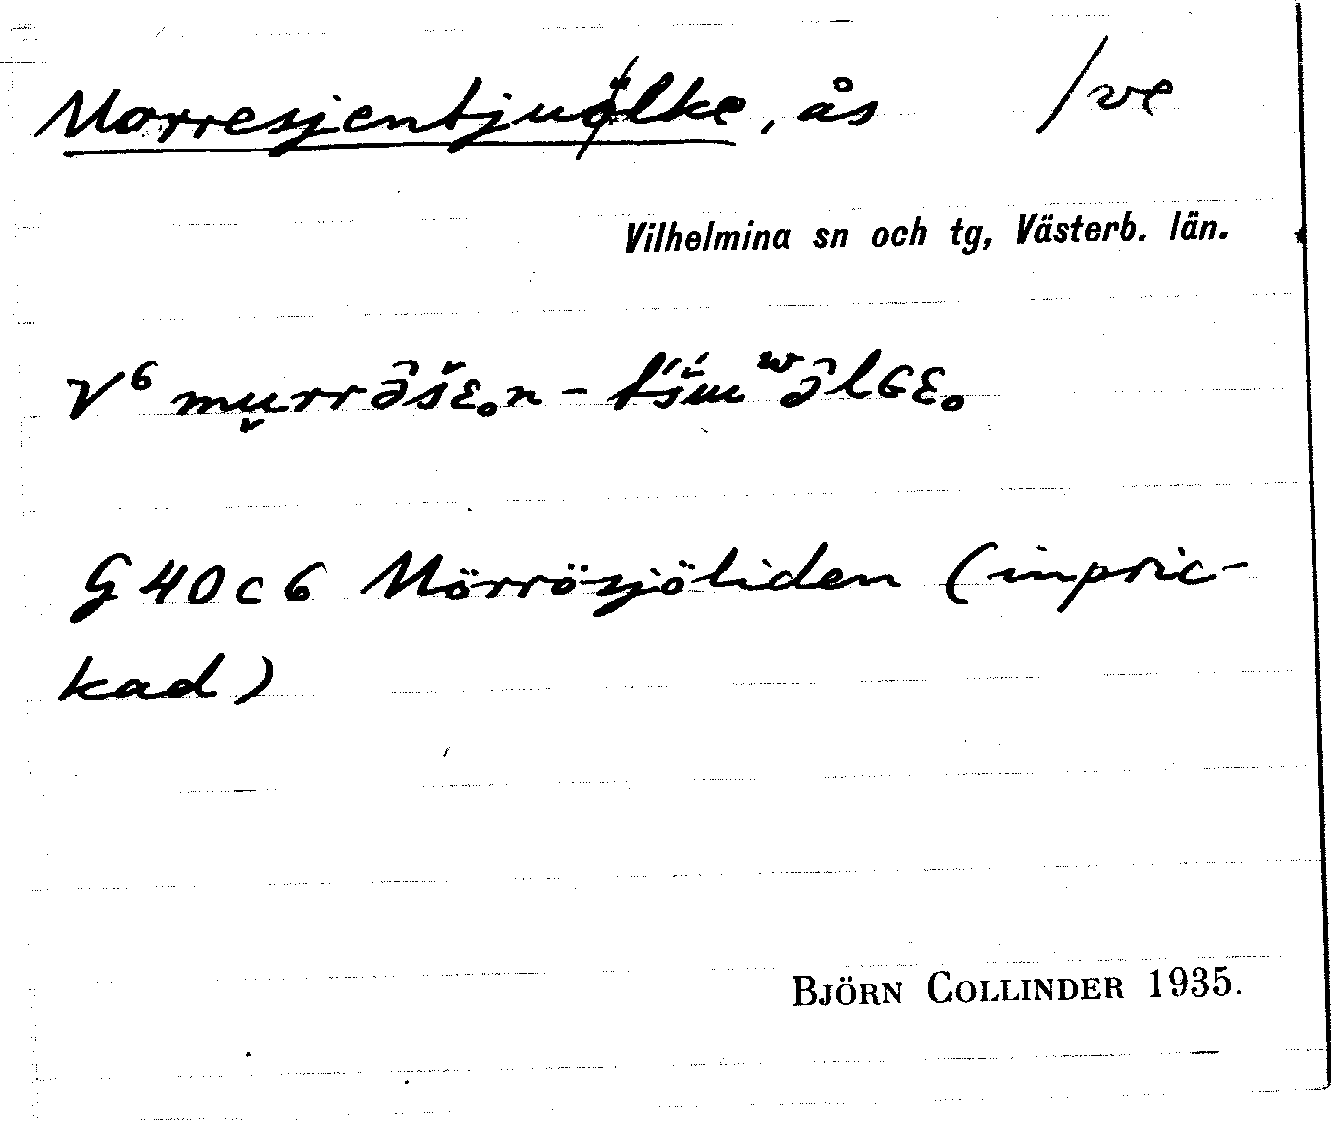 Morresjentjuölke, ås /ve
Vilhelmina sn och tg, Västerb. län.
V⁶
G 40 c 6 Mörrösjöliden (inpric-
kad)
BJÖRN COLLINDER 1935.